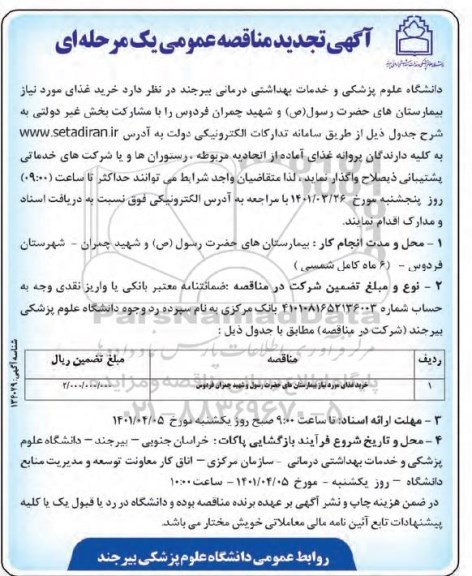 آگهی تجدید مناقصه عمومی یک مرحله‌ای
دانشگاه علوم پزشکی و خدمات بهداشتی درمانی بیرجند در نظر دارد خرید غذای مورد نیاز
بیمارستان های حضرت رسول(ص) و شهید چمران فردوس را با مشارکت بخش غیر دولتی به
شرح جدول ذیل از طریق سامانه تدارکات الکترونیکی دولت به آدرس www.setadiran.ir
به کلیه دارندگان پروانه غذای آماده از اتحادیه مربوطه ، رستوران ها و یا شرکت های خدماتی
پشتیبانی ذیصلاح واگذار نماید، لذا متقاضیان واجد شرایط می توانند حداکثر تا ساعت (۰۹:۰۰)
روز پنجشنبه مورخ ۱۴۰۱/۰۳/۲۶ با مراجعه به آدرس الکترونیکی فوق نسبت به دریافت اسناد
و مدارک اقدام نمایند.
۱ - محل و مدت انجام کار : بیمارستان های حضرت رسول (ص) و شهید چمران - شهرستان
فردوس - (۶ ماه کامل شمسی )
۲ - نوع و مبلغ تضمین شرکت در مناقصه :ضمانتنامه معتبر بانکی یا واریز نقدی وجه به
حساب شماره ۴۱۰۱۰۸۱۶۵۲۱۳۶۰۰۳ بانک مرکزی به نام سپرده رد وجوه دانشگاه علوم پزشکی
بیرجند (شرکت در مناقصه) مطابق با جدول ذیل :
ردیف مناقصه مبلغ تضمین ریال
۱ خرید غذای مورد نیاز بیمارستان های حضرت رسول و شهید چمران فردوس ۲/۰۰۰/۰۰۰/۰۰۰
۳ - مهلت ارائه اسناد: تا ساعت ۹:۰۰ صبح روز یکشنبه مورخ ۱۴۰۱/۰۴/۰۵
۴ - محل و تاریخ شروع فرآیند بازگشایی پاکات : خراسان جنوبی – بیرجند – دانشگاه علوم
پزشکی و خدمات بهداشتی درمانی - سازمان مرکزی – اتاق کار معاونت توسعه و مدیریت منابع
دانشگاه – روز یکشنبه - مورخ ۱۴۰۱/۰۴/۰۵ - ساعت ۱۰:۰۰
در ضمن هزینه چاپ و نشر آگهی بر عهده برنده مناقصه بوده و دانشگاه در رد یا قبول یک یا کلیه
پیشنهادات تابع آئین نامه مالی معاملاتی خویش مختار می باشد.
روابط عمومی دانشگاه علوم پزشکی بیرجند
شناسه آگهی: ۱۳۴۰۷۹
ParsNamadData
۰۲۱-۸۸۳۴۹۶۷۰-۵